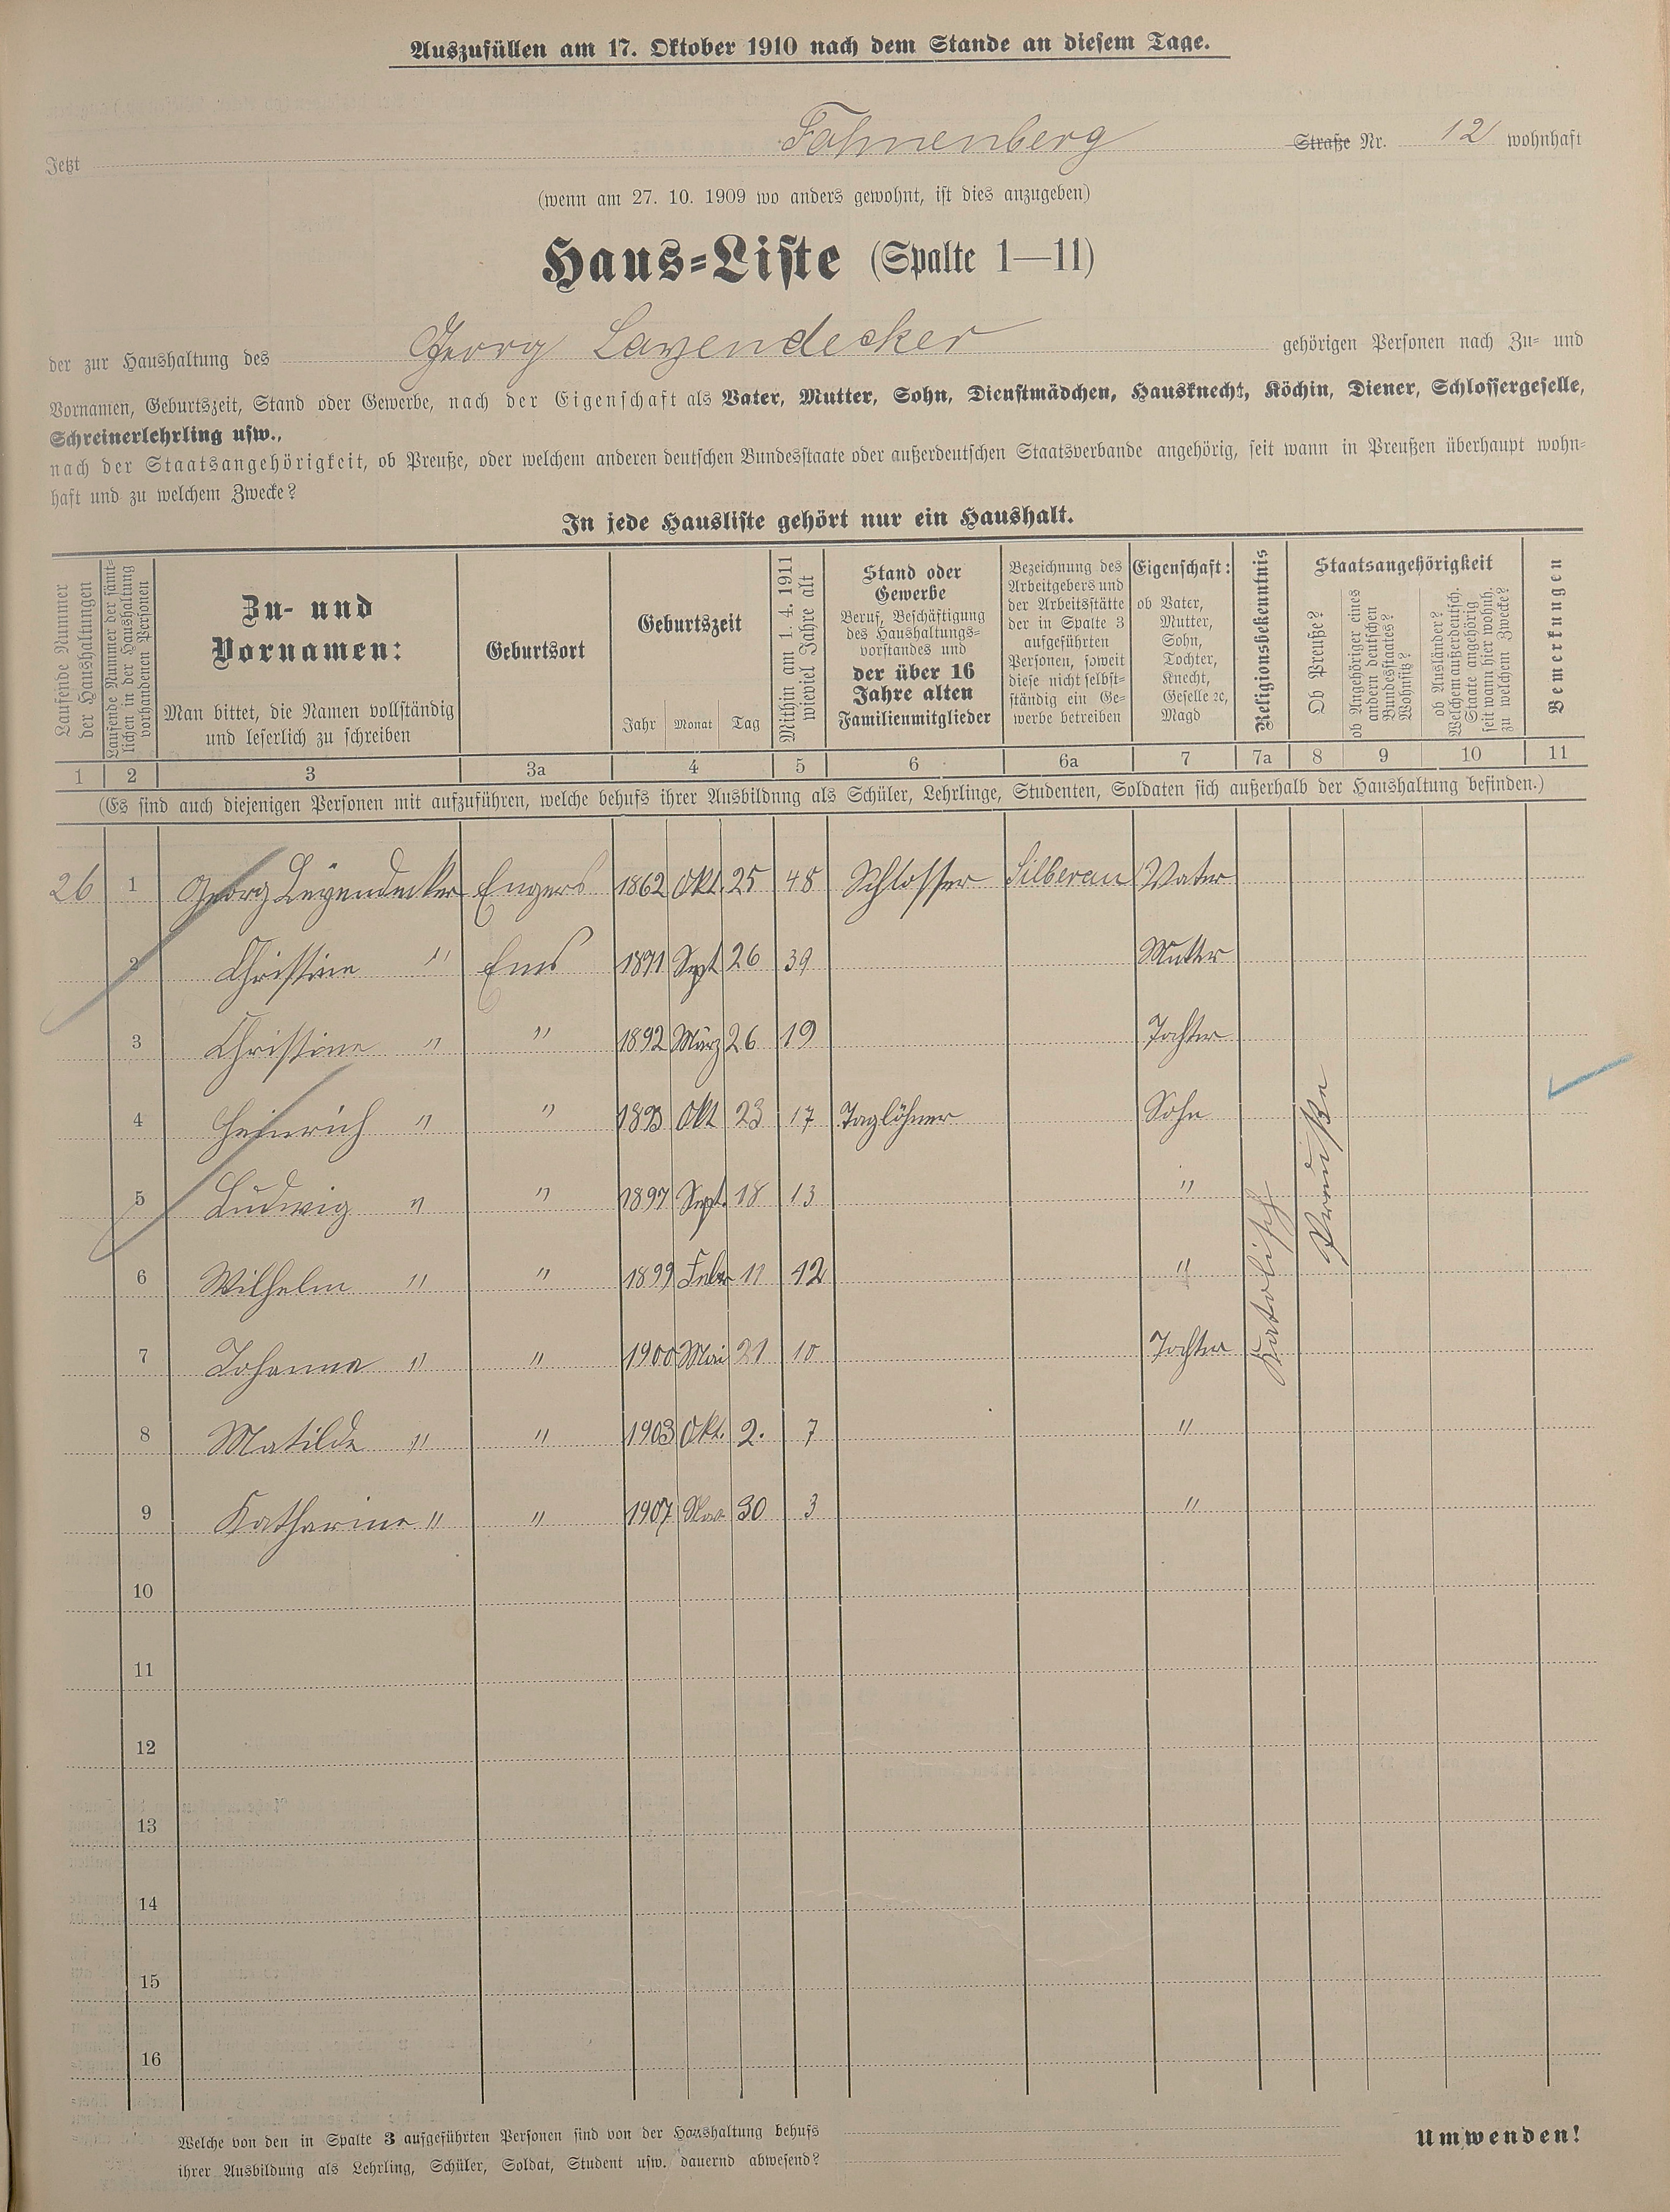 Auszufüllen am 17. Oktober 1910 nach dem Stande an diesem Tage.
Jetzt Fahnenberg Straße Nr. 12 wohnhaft
(wenn am 27. 10. 1909 wo anders gewohnt, ist dies anzugeben)
Haus-Liste (Spalte 1—11)
der zur Haushaltung des Georg Layendecker gehörigen Personen nach Zu- und
Vornamen, Geburtszeit, Stand oder Gewerbe, nach der Eigenschaft als Vater, Mutter, Sohn, Dienstmädchen, Hausknecht, Köchin, Diener, Schlossergeselle,
Schreinerlehrling usw.,
nach der Staatsangehörigkeit, ob Preuße, oder welchem anderen deutschen Bundesstaate oder außerdeutschen Staatsverbande angehörig, seit wann in Preußen überhaupt wohn-
haft und zu welchem Zwecke?
In jede Hausliste gehört nur ein Haushalt.
Laufende Nummer
der Haushaltungen
Laufende Nummer der sämt-
lichen in der Haushaltung
vorhandenen Personen
Zu- und
Vornamen:
Man bittet, die Namen vollständig
und leserlich zu schreiben
Geburtsort
Geburtszeit
Jahr Monat Tag
Mithin am 1. 4. 1911
wieviel Jahre alt
Stand oder
Gewerbe
Beruf, Beschäftigung
des Haushaltungs-
vorstandes und
der über 16
Jahre alten
Familienmitglieder
Bezeichnung des
Arbeitgebers und
der Arbeitsstätte
der in Spalte 3
aufgeführten
Personen, soweit
diese nicht selbst-
ständig ein Ge-
werbe betreiben
Eigenschaft:
ob Vater,
Mutter,
Sohn,
Tochter,
Knecht,
Geselle ꝛc,
Magd
Religionsbekenntnis
Staatsangehörigkeit
Ob Preuße?
ob Angehöriger eines
andern deutschen
Bundesstaates?
Wohnsitz?
ob Ausländer?
Welchem außerdeutsch.
Staate angehörig
seit wann hier wohnh.
zu welchem Zwecke?
Bemerkungen
1 2 3 3a 4 5 6 6a 7 7a 8 9 10 11
(Es sind auch diejenigen Personen mit aufzuführen, welche behufs ihrer Ausbildnng als Schüler, Lehrlinge, Studenten, Soldaten sich außerhalb der Haushaltung befinden.)
26 1 Georg Leyendecker Engers 1862 Okt. 25 48 Schlosser Silberau Vater
2 Christine " Ems 1871 Sept 26 39 Mutter
3 Christine " " 1892 März 26 19 Tochter
4 Heinrich " " 1893 Okt 23 17 Taglöhner Sohn
5 Ludwig " " 1897 Sept. 18 13 "
6 Wilhelm " " 1899 Febr 11 12 "
7 Johanna " " 1900 Mai 21 10 Tochter
8 Matilde " " 1903 Okt. 2. 7 "
9 Katharina " " 1907 Nov 30 3 "
Katolisch
Preuße
10
11
12
13
14
15
16
Welche von den in Spalte 3 aufgeführten Personen sind von der Haushaltung behufs
ihrer Ausbildung als Lehrling, Schüler, Soldat, Student usw. dauernd abwesend?
Umwenden!